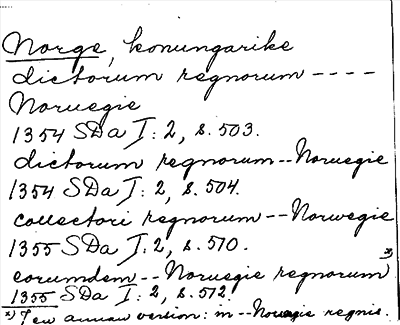 Norge, konungarike
dictorum regnorum ----
Noruegie
1354 SDa I: 2, s. 503.
dictorum regnorum--Noruegie
1354 SDa I: 2, s. 504.
collectori regnorum--Norwegie
1355 SDa I: 2, s. 570.
eorumdem--Noruegie regnorum x)
1355 SDa I: 2, s. 572.
x) I en annan version: in--Noruegie regnis.